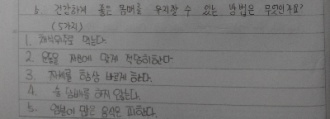 & 건강하게 좋은 몸매를 유지할 수 있는 방법은 무엇인가요?
(5가지)
1. 채식위주로 먹는다.
2. 운동을 체형에 맞게 적당히한다.
3. 자세를 항상 바르게 한다.
4. 술 담배를 하지 않는다.
5. 염분이 많은 음식은 피한다.